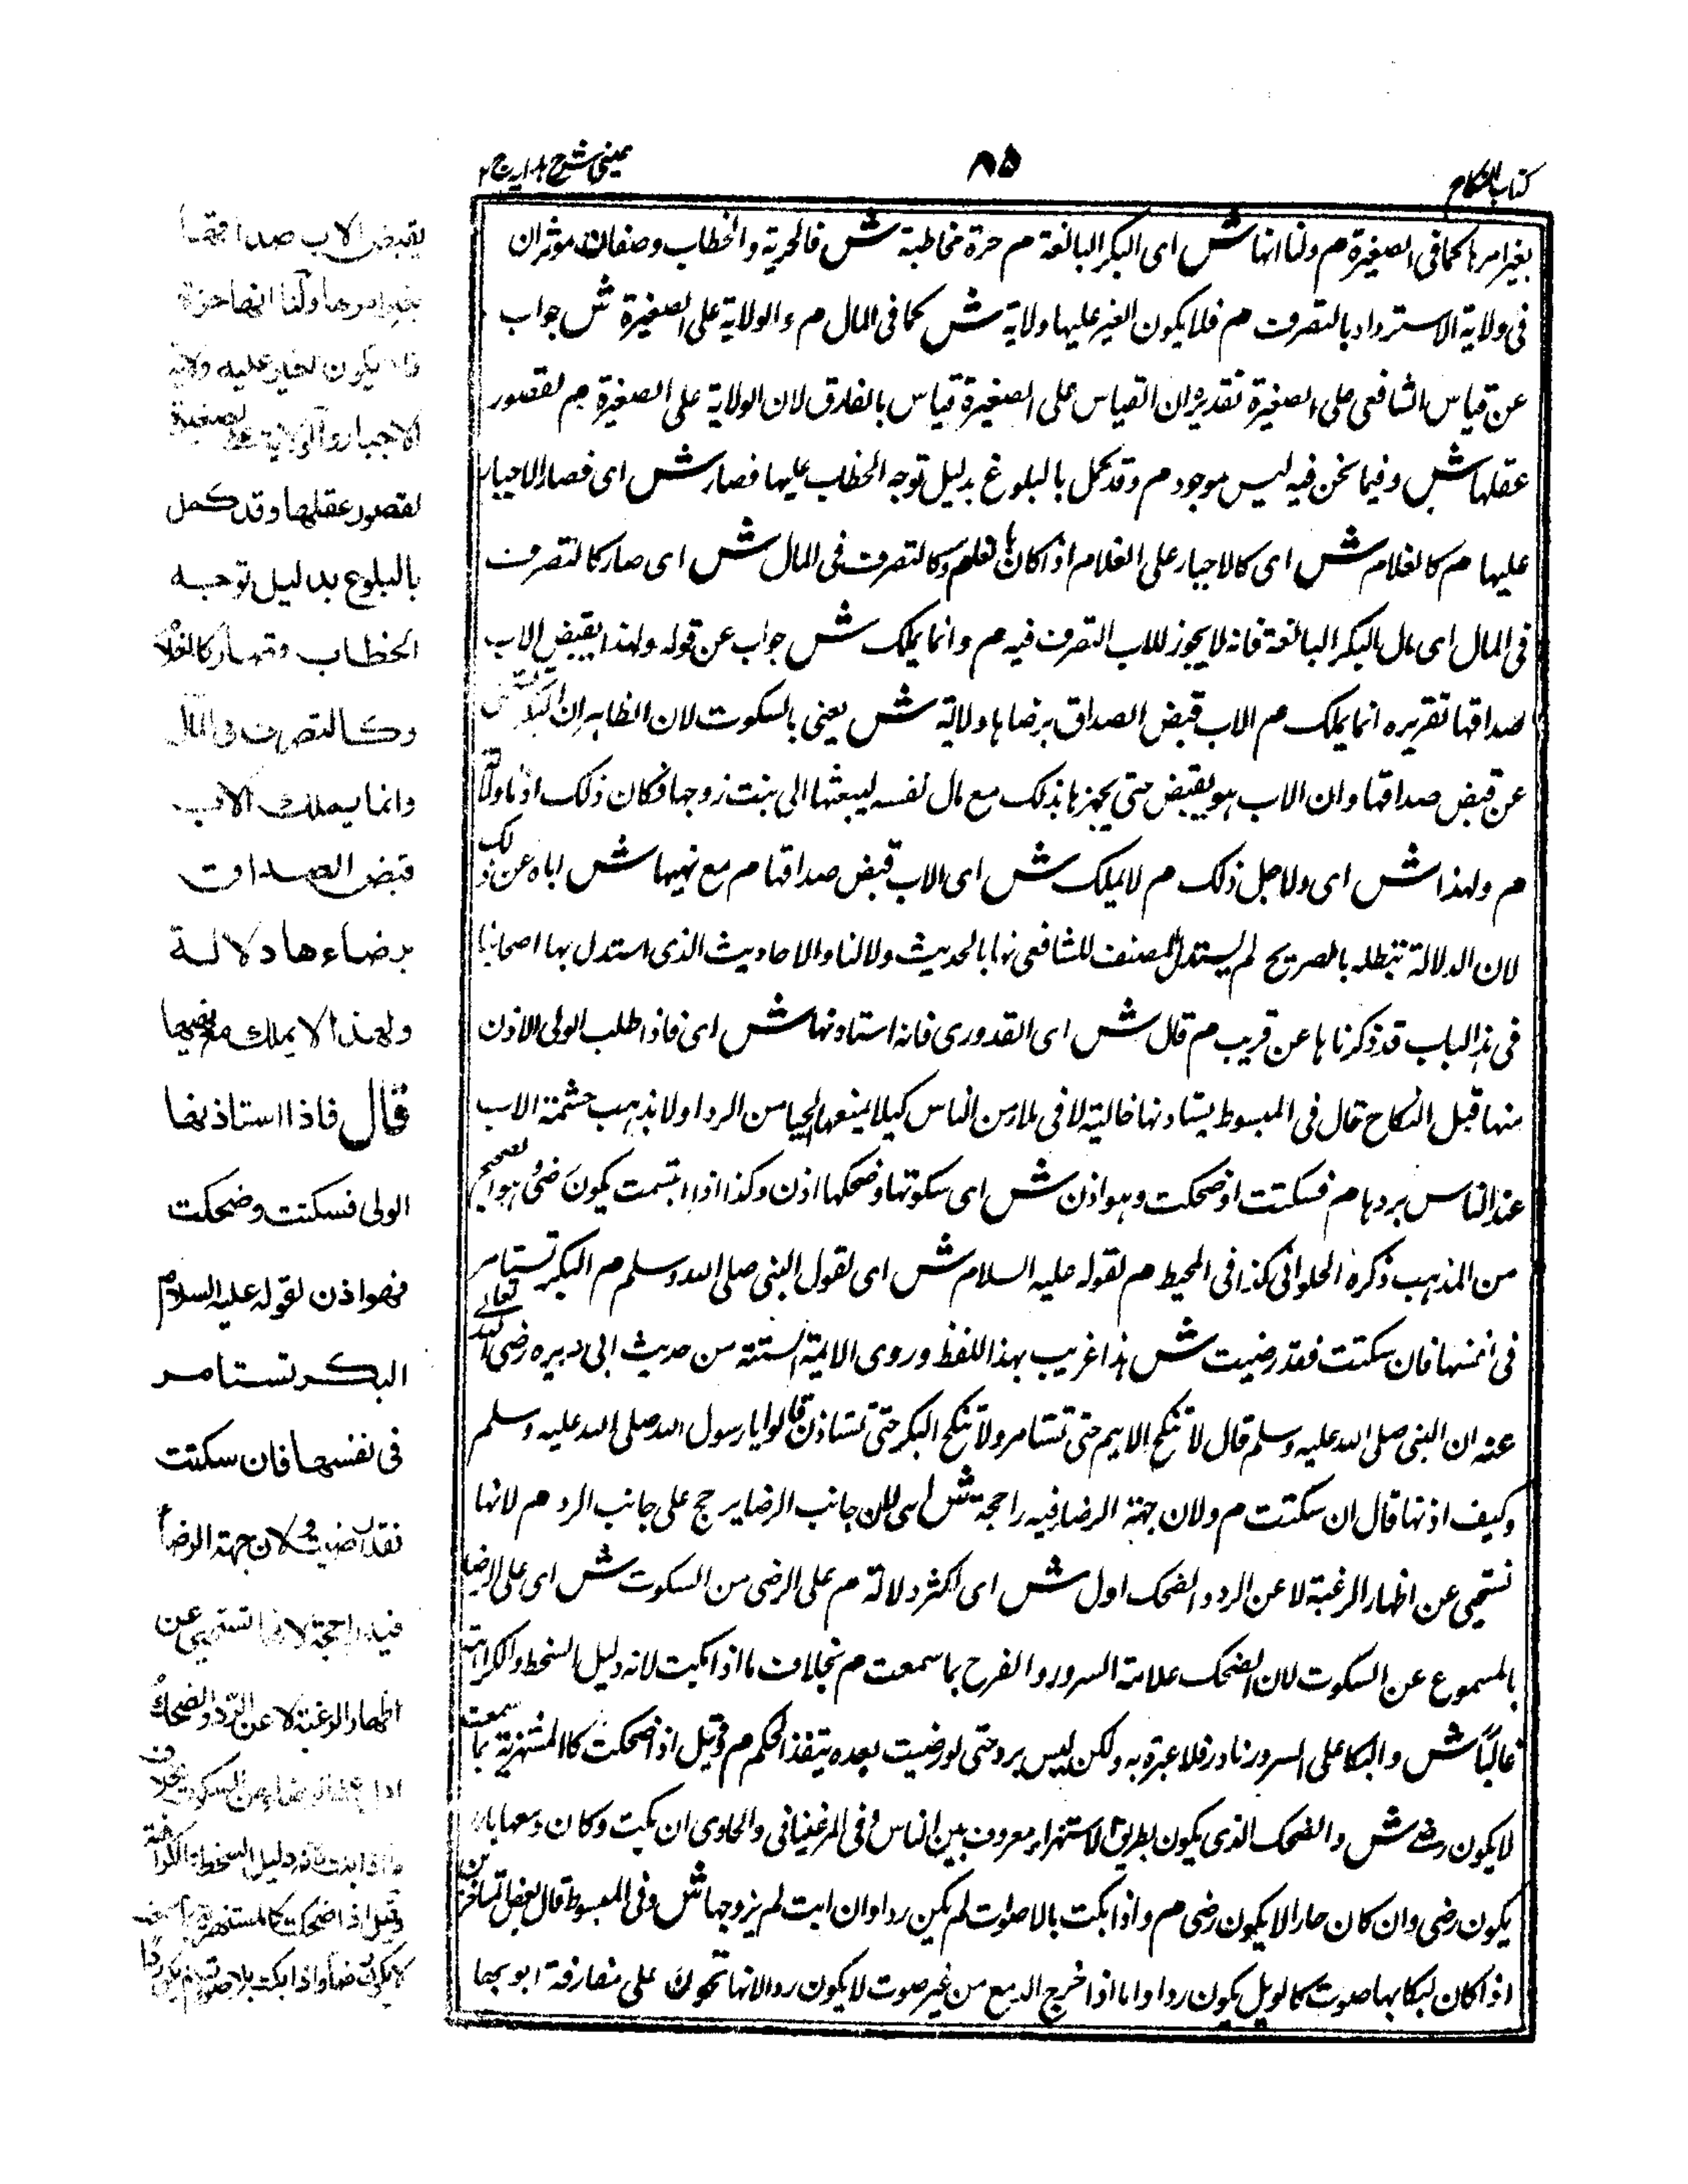 كتاب النكاح
٨٥
عينى شرح هدايه ج ٢
بغير امرها كما فى الصغيرة م ولنا انها ش اى البكر البالغة م حرة مخاطبة ش فالحرية والخطاب وصفان مؤثران
فى ولاية الاسترداد بالتصرف م فلا يكون الغير عليها ولاية ش كما فى المال م والولاية على الصغيرة ش جواب
عن قياس الشافعى على الصغيرة تقديره ان القياس على الصغيرة قياس بالفارق لان الولاية على الصغيرة م لقصور
عقلها ش وفيما نحن فيه ليس موجود م وقد كمل بالبلوغ بدليل توجه الخطاب عليها فصار ش اى فصار الاجبار
عليها م كالغلام ش اى كالاجبار على الغلام اذا كان م وكالتصرف فى المال ش اى صار كالتصرف
فى المال اى مال البكر البالغة فانه لا يجوز للاب التصرف فيه م وانما يملك ش جواب عن قوله ولهذا يقبض الاب
صداقها تقريره انما يملك م الاب قبض الصداق برضاها ولالة ش يعنى بالسكوت لان الظاهر ان البكر
عن قبض صداقها وان الاب هو يقبض حتى يجهزها بذلك مع مال نفسه ليبعثها الى بنت زوجها فكان ذلك اذنا ولالة
م ولهذا ش اى ولاجل ذلك م لا يملك ش اى الاب قبض صداقها م مع نهيها ش اباه عن ذلك
لان الدلالة تبطله بالصريح لم يستدل المصنف للشافعى نها بالحديث ولا لنا والاحاديث الذى استدل بها اصحابنا
فى هذا الباب قد ذكرناها عن قريب م قال ش اى القدورى فانه استاذنها ش اى فاذا طلب الولى الاذن
منها قبل النكاح قال فى المبسوط يستاذنها خالية لا فى ملا من الناس كيلا يمنعها الحيا من الرد او لا يذهب حشمة الاب
عند الناس بردها م فسكتت او ضحكت وهو اذن ش اى سكوتها وضحكها اذن وكذا اذا ابتسمت يكون رضى هو الصحيح
من المذهب ذكره الحلوانى كذا فى المحيط م لقوله عليه السلام ش اى لقول النبى صلى الله وسلم م البكر تستامر
فى نفسها فان سكتت فقد رضيت ش هذا غريب بهذا اللفظ وروى الائمة الستة من حديث ابى هريره رضى الله تعالى
عنه ان النبى صلى الله عليه وسلم قال لا تنكح الايم حتى تستامر ولا تنكح البكر حتى تستاذن قالوا يا رسول الله صلى الله عليه وسلم
وكيف اذنها قال ان سكتت م ولان جهة الرضا فيه راجحة ش اى لان جانب الرضا يرجح على جانب الرد م لانها
تستحيى عن اظهار الرغبة لا عن الرد والضحك اول ش اى اكثر دلالة م على الرضى من السكوت ش اى على الرضا
بالمسموع عن السكوت لان الضحك علامة السرور والفرح بما سمعت م بخلاف ما اذا بكت لانه دليل السخط والكراهة
غالباً ش والبكا على السرور نادر فلا عبرة به ولكن ليس برد حتى لو رضيت بعده يتفذ الحكم م وقيل اذا ضحكت كالمستهزية بما سمعت
لا يكون رضى ش والضحك الذى يكون بطريق الاستهزاء معروف بين الناس وفى المرغينانى والحاوى ان بكت وكان دمعها بارد
يكون رضى وان كان حارا لا يكون رضى م واذا بكت بالاصوات لم يكن ردا وان ابت لم يزوجها ش وفى المبسوط قال بعض المتاخرين
اذا كان لبكائها صوت كالويل يكون ردا واما اذا خرج الدمع من غير صوت لا يكون ردا لانها تحزن على مفارقة ابويها
يقبض الاب صداقها
بغير امرها ولنا انها حرة
فلا يكون لغير عليه ولاية
الاجبار والولاية على الصغيرة
لقصور عقلها وقد كمل
بالبلوغ بدليل توجه
الخطاب فصار كالغلام
وكالتصرف فى المال
وانما يملك الاب
قبض الصداق
برضاءها دلالة
ولهذا لا يملك مع نهيها
قال فاذا استاذنها
الولى فسكتت وضحكت
فهو اذن لقوله عليه السلام
البكر تستامر
فى نفسها فان سكتت
فقد رضيت ولان جهة الرضأ
فيه راجحة لانها تستحيى عن
اظهار الرغبة لا عن الرد والضحك
من السكوت بخلاف
دليل السخط والكراهة
وقيل اذا ضحكت كالمستهزية
لا يكون رضا واذا بكت بلا صوت لم يكن ردا